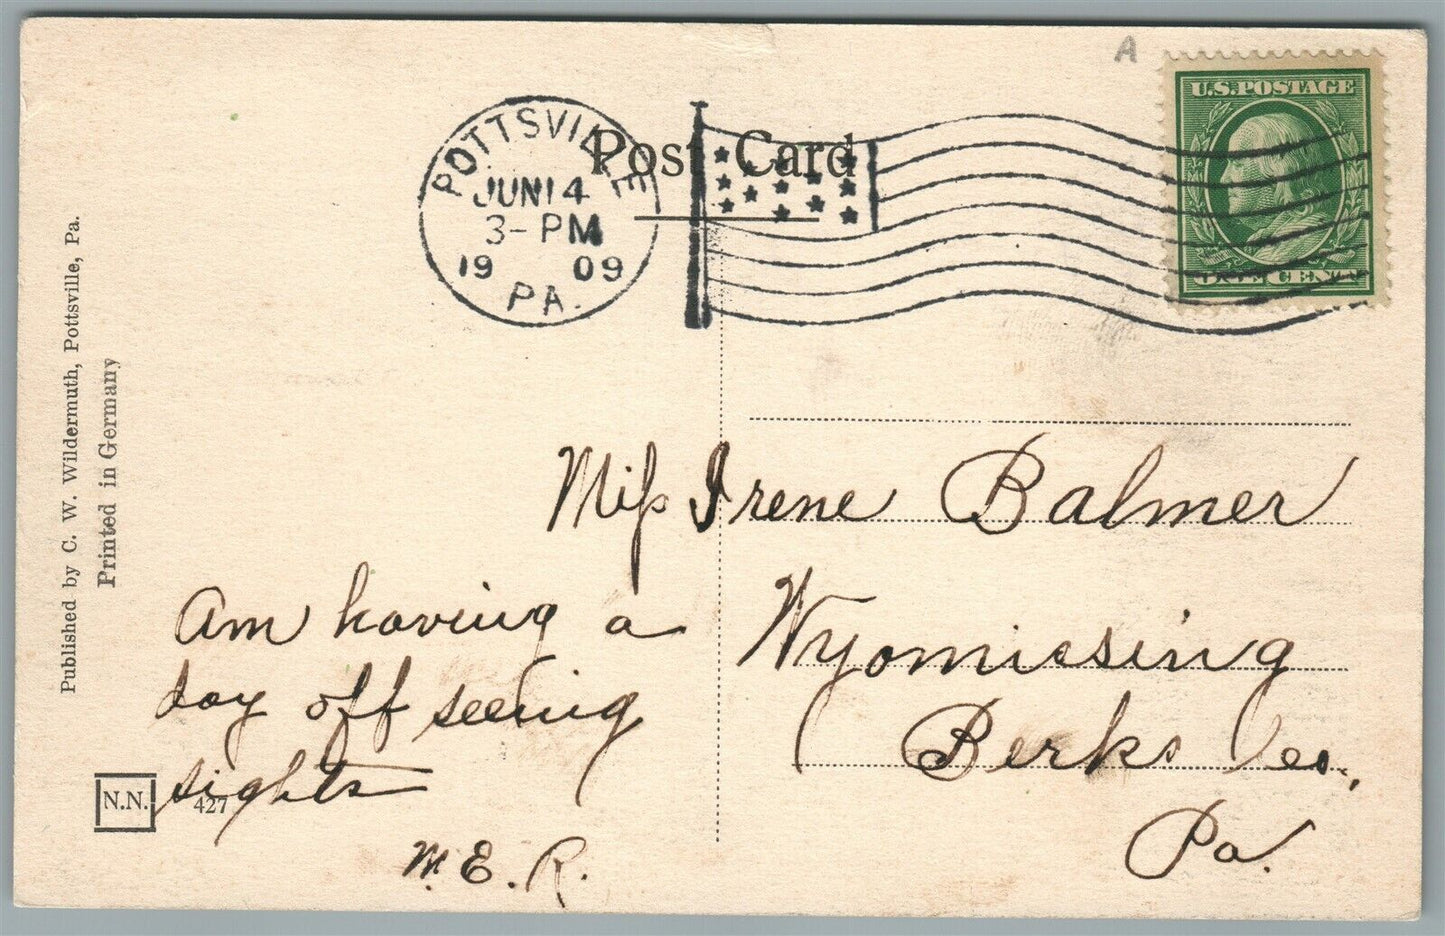 A
U.S. POSTAGE
ONE CENT
Post Card
POTTSVILLE
JUN 14
3-PM
19 09
PA.
Published by C. W. Wildermuth, Pottsville, Pa.
Printed in Germany
Miss Irene Balmer
Wyomissing
Berks Co.,
Pa.
Am having a
day off seeing
sights
M. E. R.
N.N.
427